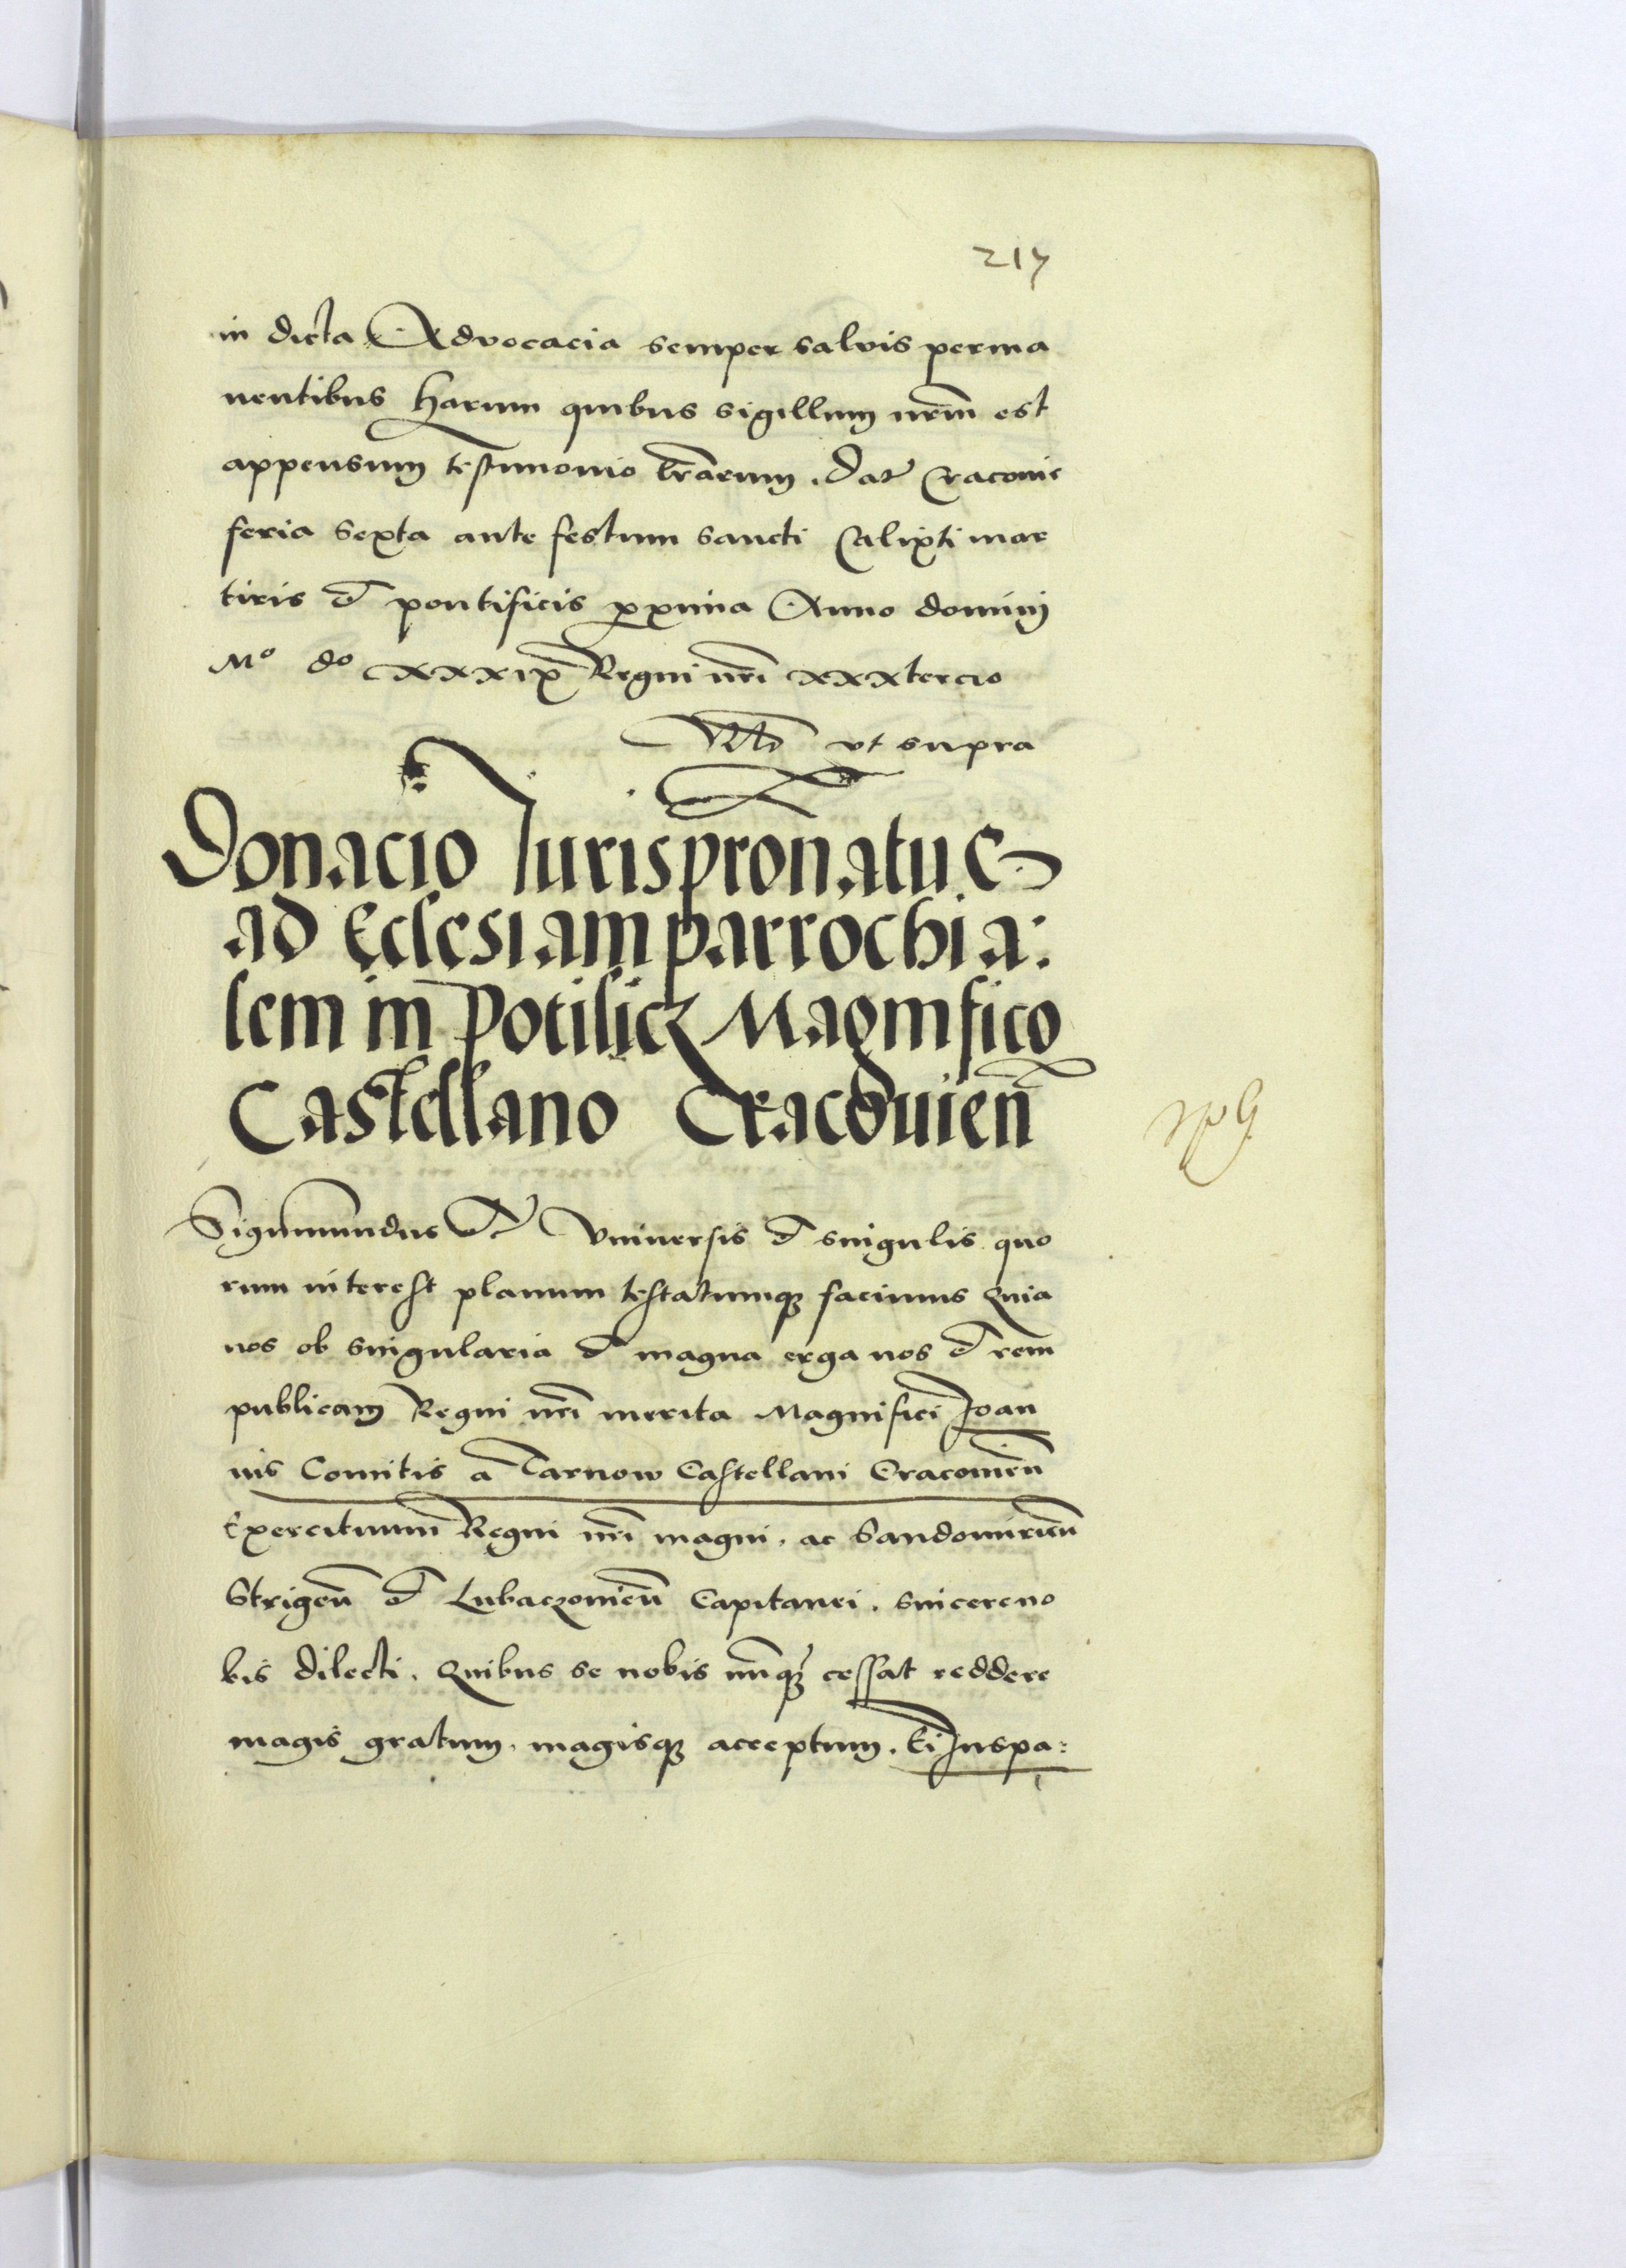 217
in dicta Advocacia semper salvis perma
nentibus harum quibus sigillum nr̄m est
appensum testimonio lr̄arum. Dat Cracovie
feria sexta ante festum sancti Calixti mar
tiris et pontificis pxima Anno domini
Mo do xxxix Regni nr̄i xxxtercio
ut supra
Donacio Jurispronatus
ad Eclesiam parrochia:
lem in Potilicz Magnifico
Castellano Cracovien̄
Sigismundus etc Universis et singulis quo
rum interest planum testatumqz facimus Quia
nos ob singularia et magna erga nos et rem
publicam Regni nr̄i merita Magnifici Joan
nis Comitis a Tarnow Castellani Cracovien̄
Exercituum Regni nr̄i magni. ac Sandomirien̄
Strigen̄ et Lubaczovien̄ Capitanei. sincere no
bis dilecti. Quibus se nobis nunqz cessat reddere
magis gratum. magisqz acceptum. Ei Juspa: